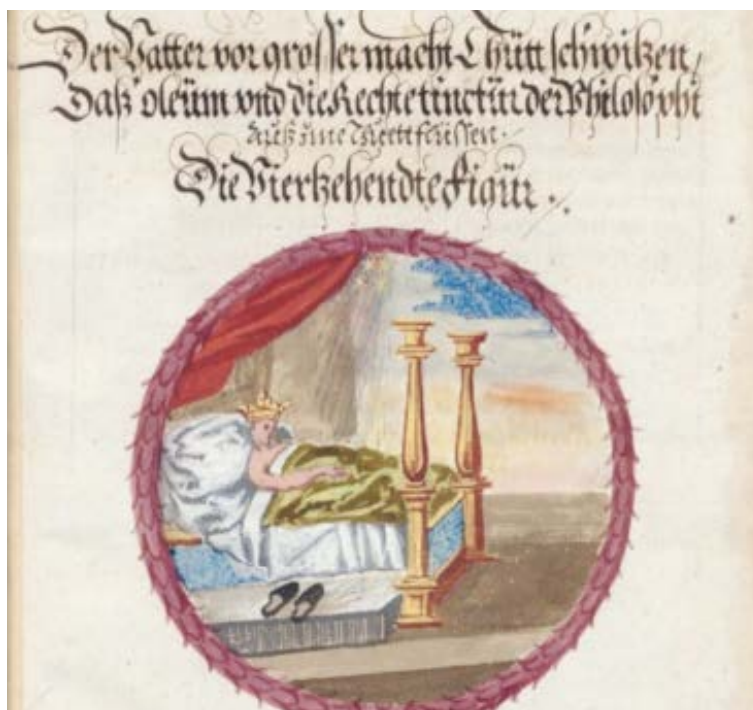 Der Vatter vor grosser macht Thütt schwitzen,
Daß oleüm vnd die Rechte tinctür der Philosophi
auß ime Thett feüssen.
Die Viertzehendte figür.